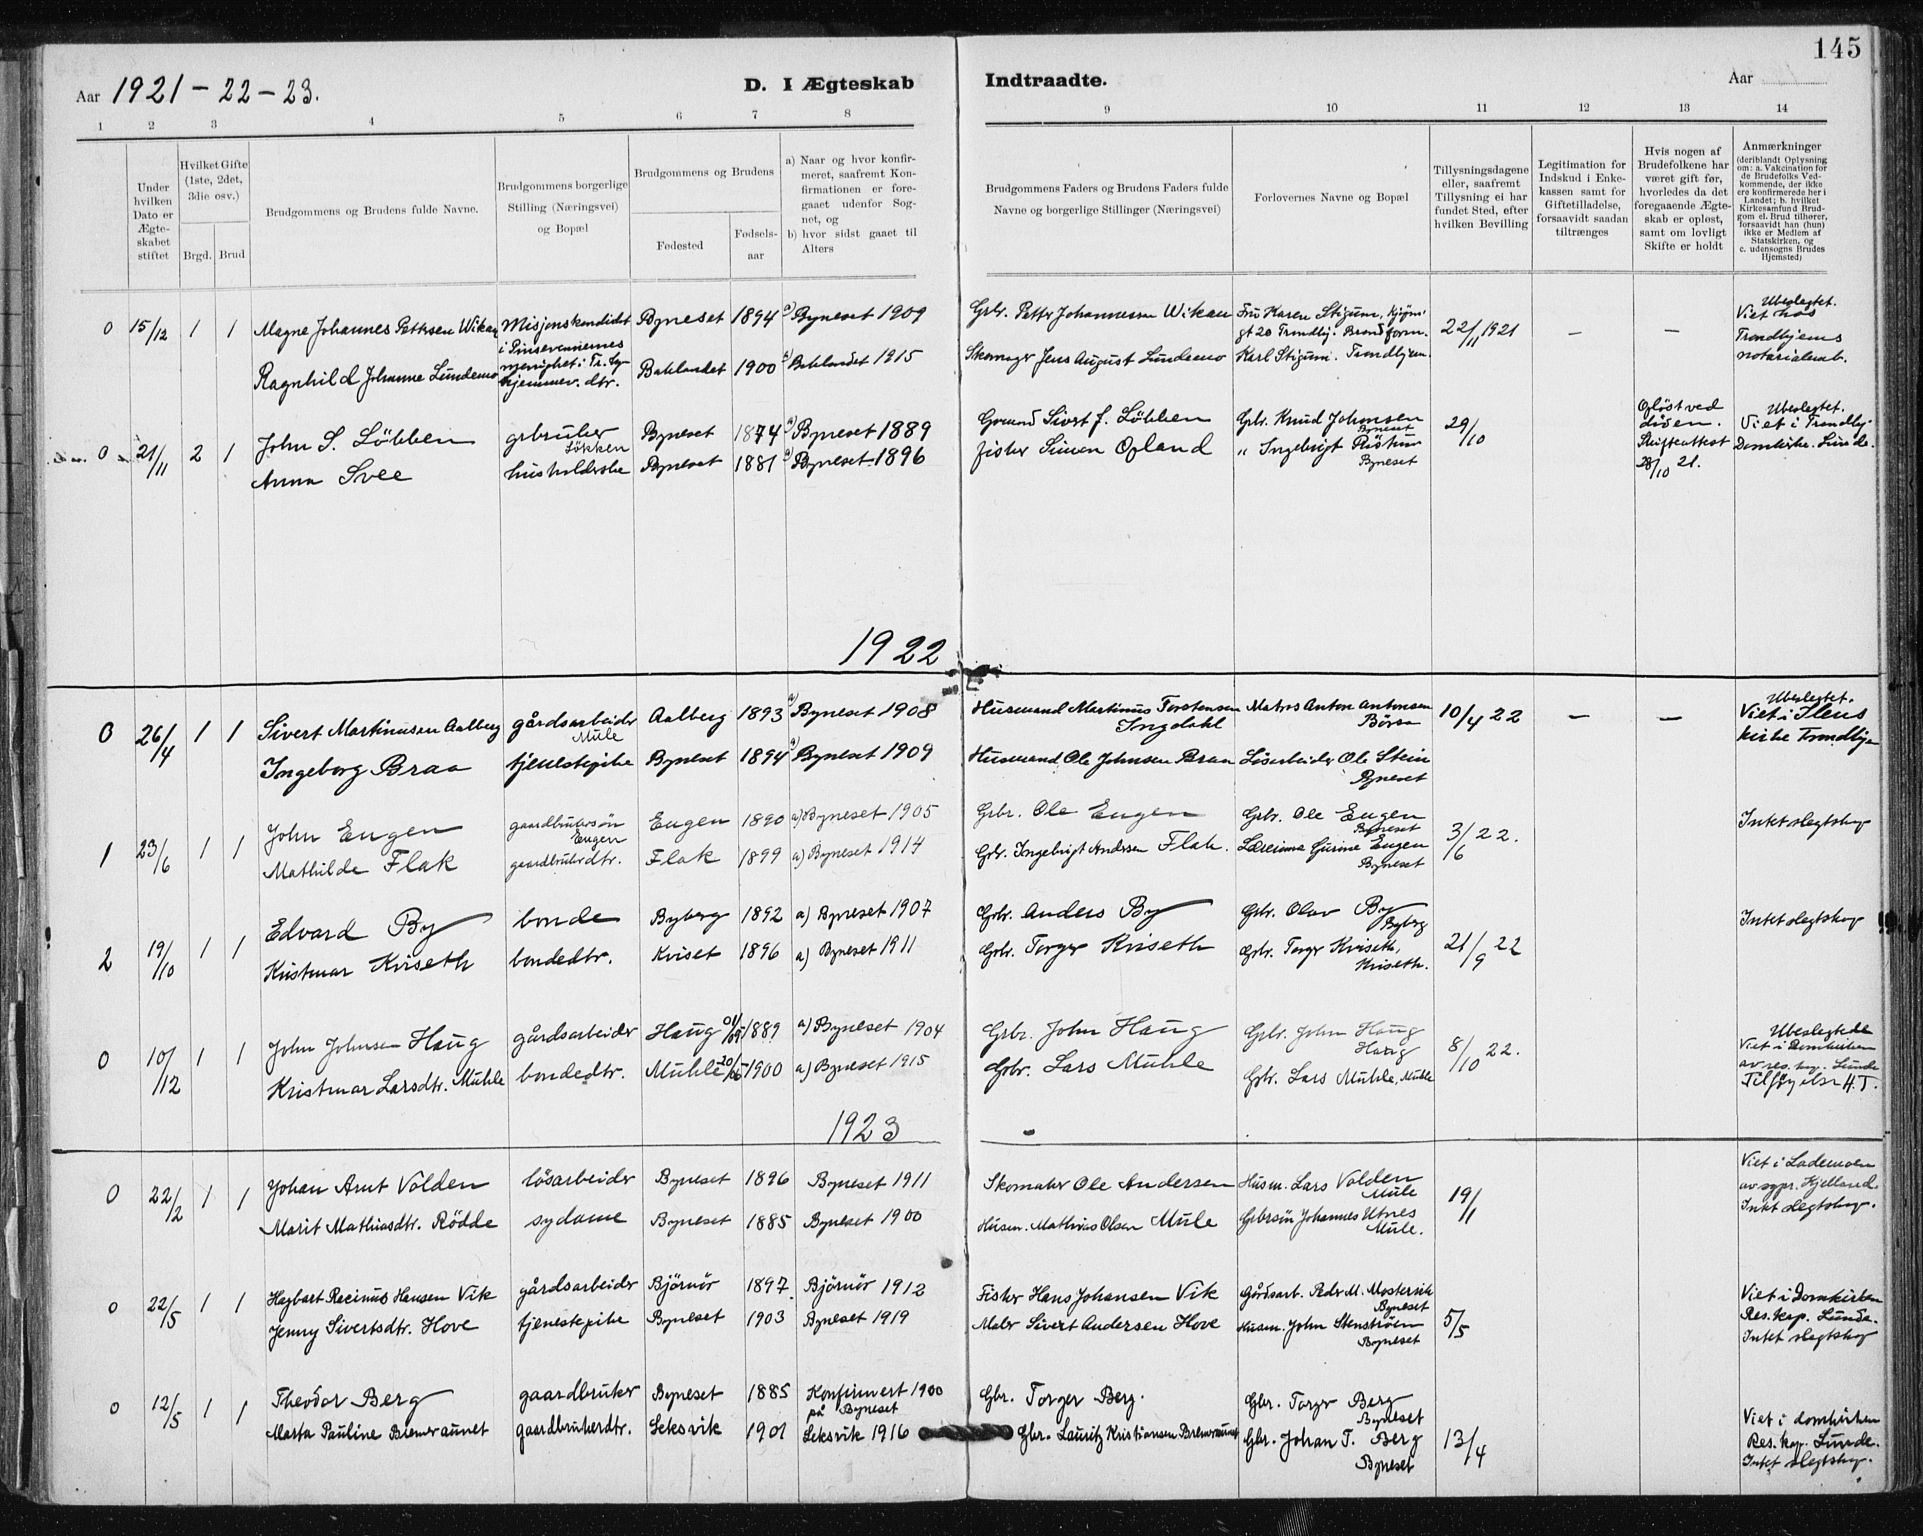 145
Aar 1921 - 22 - 23.
D. I Ægteskab Indtraadte.
Aar
1 2 3 4 5 6 7 8 9 10 11 12 13 14
Under hvilken Dato er Ægteskabet stiftet
Hvilket Gifte (1ste, 2det, 3die osv.)
Brgd. Brud
Brudgommens og Brudens fulde Navne.
Brudgommens borgerlige Stilling (Næringsvei) og Bopæl
Brudgommens og Brudens
Fødested
Fødsels-aar
a) Naar og hvor konfir-
meret, saafremt Kon-
firmationen er fore-
gaaet udenfor Sog-
net, og
b) hvor sidst gaaet til
Alters
Brudgommens Faders og Brudens Faders fulde
Navne og borgerlige Stillinger (Næringsvei)
Forlovernes Navne og Bopæl
Tillysningsdagene
eller, saafremt
Tillysning ei har
fundet Sted, efter
hvilken Bevilling
Legitimation for
Indskud i Enke-
kassen samt for
Giftetilladelse,
forsaavidt saadan
tiltrænges
Hvis nogen af
Brudefolkene har
været gift før,
hvorledes da det
foregaaende Ægte-
skab er opløst,
samt om lovligt
Skifte er holdt
Anmærkninger
(deriblandt Oplysning
om: a. Vakcination for
de Brudefolks Ved-
kommende, der ikke
ere konfirmerede her i
Landet; b. hvilket
Kirkesamfund Brud-
gom el. Brud tilhører,
forsaavidt han (hun)
ikke er Medlem af
Statskirken, og
c. udensogns Brudes
Hjemsted)
0 15/12 1 1 Magne Johannes Pettersen Wikan Misjonskandidat Byneset 1894 a) Byneset 1909 Grbr. Petter Johannessen Wikan Fru Karen Stigum, 22/11 1921 – – Ubeslegtet.
i Pinsevennernes gt 20 Trondhj. Viet hos
menighet i Tr. Trondhjems
Ragnhild Johanne Lundemo hjemmev. dtr. Baklandet 1900 a) Baklandet 1915 Skomager Jens August Lundemo Karl Stigum. Trondhjem. notarialemb.
0 21/11 2 1 John S. Lökken grbruker Byneset 1874 a) Byneset 1889 Grmand Sivert J. Lökken Grbr. Knud Johnsen 29/10 Opløst ved Ubeslegtet.
Løkken Byneset døden. Viet i Trondhj.
Anna Svee husholderske Byneset 1881 a) Byneset 1896 fisker Simon Opland " Ingebrigt Röstum Skifteattest Domkirke. Lunde.
Byneset 28/10 21.
1922
0 26/4 1 1 Sivert Martinusen Aalberg gårdsarbeider Aalberg 1893 a) Byneset 1908 Husmand Martinus Torstensen Matros Anton Antonsen 10/4 22 – – Ubeslegtet.
Mule Ingdahl Börsa Viet i Ilens
Ingeborg Braa tjenestepike Byneset 1894 a) Byneset 1909 Husmand Ole Johnsen Braa Lösarbeider Ole Stein kirke Trondhjem
Byneset
1 23/6 1 1 John Eugen gaardbrukersøn Eugen 1890 a) Byneset 1905 Grbr. Ole Eugen Grbr. Ole Eugen 3/6 22. Intet slegtskap
Eugen Byneset
Mathilde Flak gaardbrukerdtr. Flak 1899 a) Byneset 1914 Grbr. Ingebrigt Andersen Flak. Lærerinne Gurine Eugen
Byneset
2 19/10 1 1 Edvard By bonde Byberg 1892 a) Byneset 1907 Grbr. Anders By Grbr. Olav By 21/9 22 Intet slegtskap
Byberg
Kristmar Kviseth bondedtr. Kviset 1896 a) Byneset 1911 Grbr. Torger Kviseth Grbr. Torger Kviseth,
Kviseth.
0 10/12 1 1 John Johnsen Haug gårdsarbeider Haug 1889 a) Byneset 1904 Grbr. John Haug Grbr. John Haug 8/10 22. Ubeslegtede
Haug Viet i Domkirken
Kristmar Larsdtr. Muhle bondedtr. Muhle 1900 a) Byneset 1915 Grbr. Lars Muhle Grbr. Lars Muhle, Muhle av res. kap. Lunde
Tilføyelse H.T.
1923
0 22/2 1 1 Johan Arnt Volden løsarbeider Byneset 1896 Byneset 1911 Skomaker Ole Andersen Husm. Lars Volden 19/1 Viet i Lademoen
Mule av sogpr. Kjelland.
Marit Mathiasdtr. Rødde sydame Byneset 1885 Byneset 1900 Husm. Mathias Olsen Mule Grbrsön Johannes Utnes Intet slegtskap.
Mule.
0 22/5 1 1 Hagbart Racinus Hansen Vik gårdsarbeider Björnör 1897. Björnör 1912 Fisker Hans Johansen Vik Gårdsarb. Peder M. Mostervik 5/5 Viet i Domkirken
Byneset Res. kap. Lunde.
Jenny Sivertsdtr. Hove tjenestepike Byneset 1903 Byneset 1919 Maler Sivert Andersen Hove Husm. John Stenstrøm Intet slegtskap
Byneset
0 12/5 1 1 Theodor Berg gaardbruker Byneset 1885 Konfirmert 1900 Gbr. Torger Berg. Gbr. Torger Berg 13/4 Viet i domkirken
på Byneset Byneset Res. kap. Lunde.
Marta Pauline Bremeraunet gaardbrukerdtr. Leksvik 1901 Leksvik 1916 Gbr. Lauritz Kristiansen Bremeraunet Gbr. Johan T. Berg Intet slegtskap.
Byneset